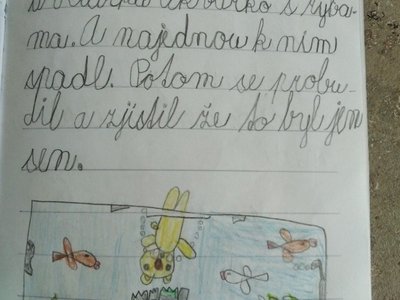 akvárko s ryba-
ma. A najednou k nim
spadl. Potom se probu-
dil a zjistil že to byl jen
sen.